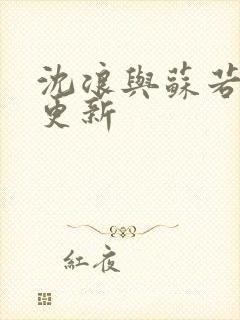 沈浪與蘇若
更新
紅夜